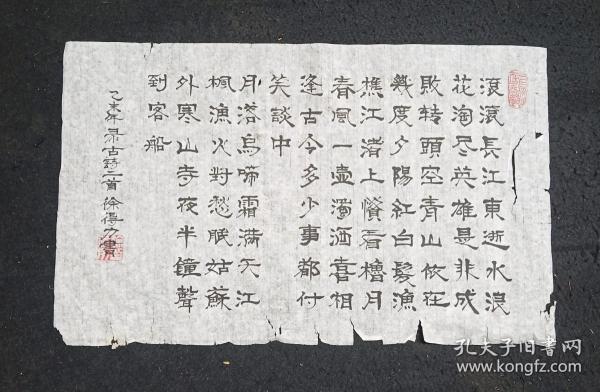 滚滚長江東逝水浪
花淘尽英雄是非成
敗转頭空青山依在
幾度夕陽紅白髮漁
樵江渚上慣看櫓月
春風一壺濁酒喜相
逢古今多少事都付
笑談中
月落烏啼霜满天江
枫漁火对愁眠姑蘇
外寒山寺夜半鐘聲
到客船
乙未年录古詩二首徐得力書
孔夫子旧书网
www.kongfz.com